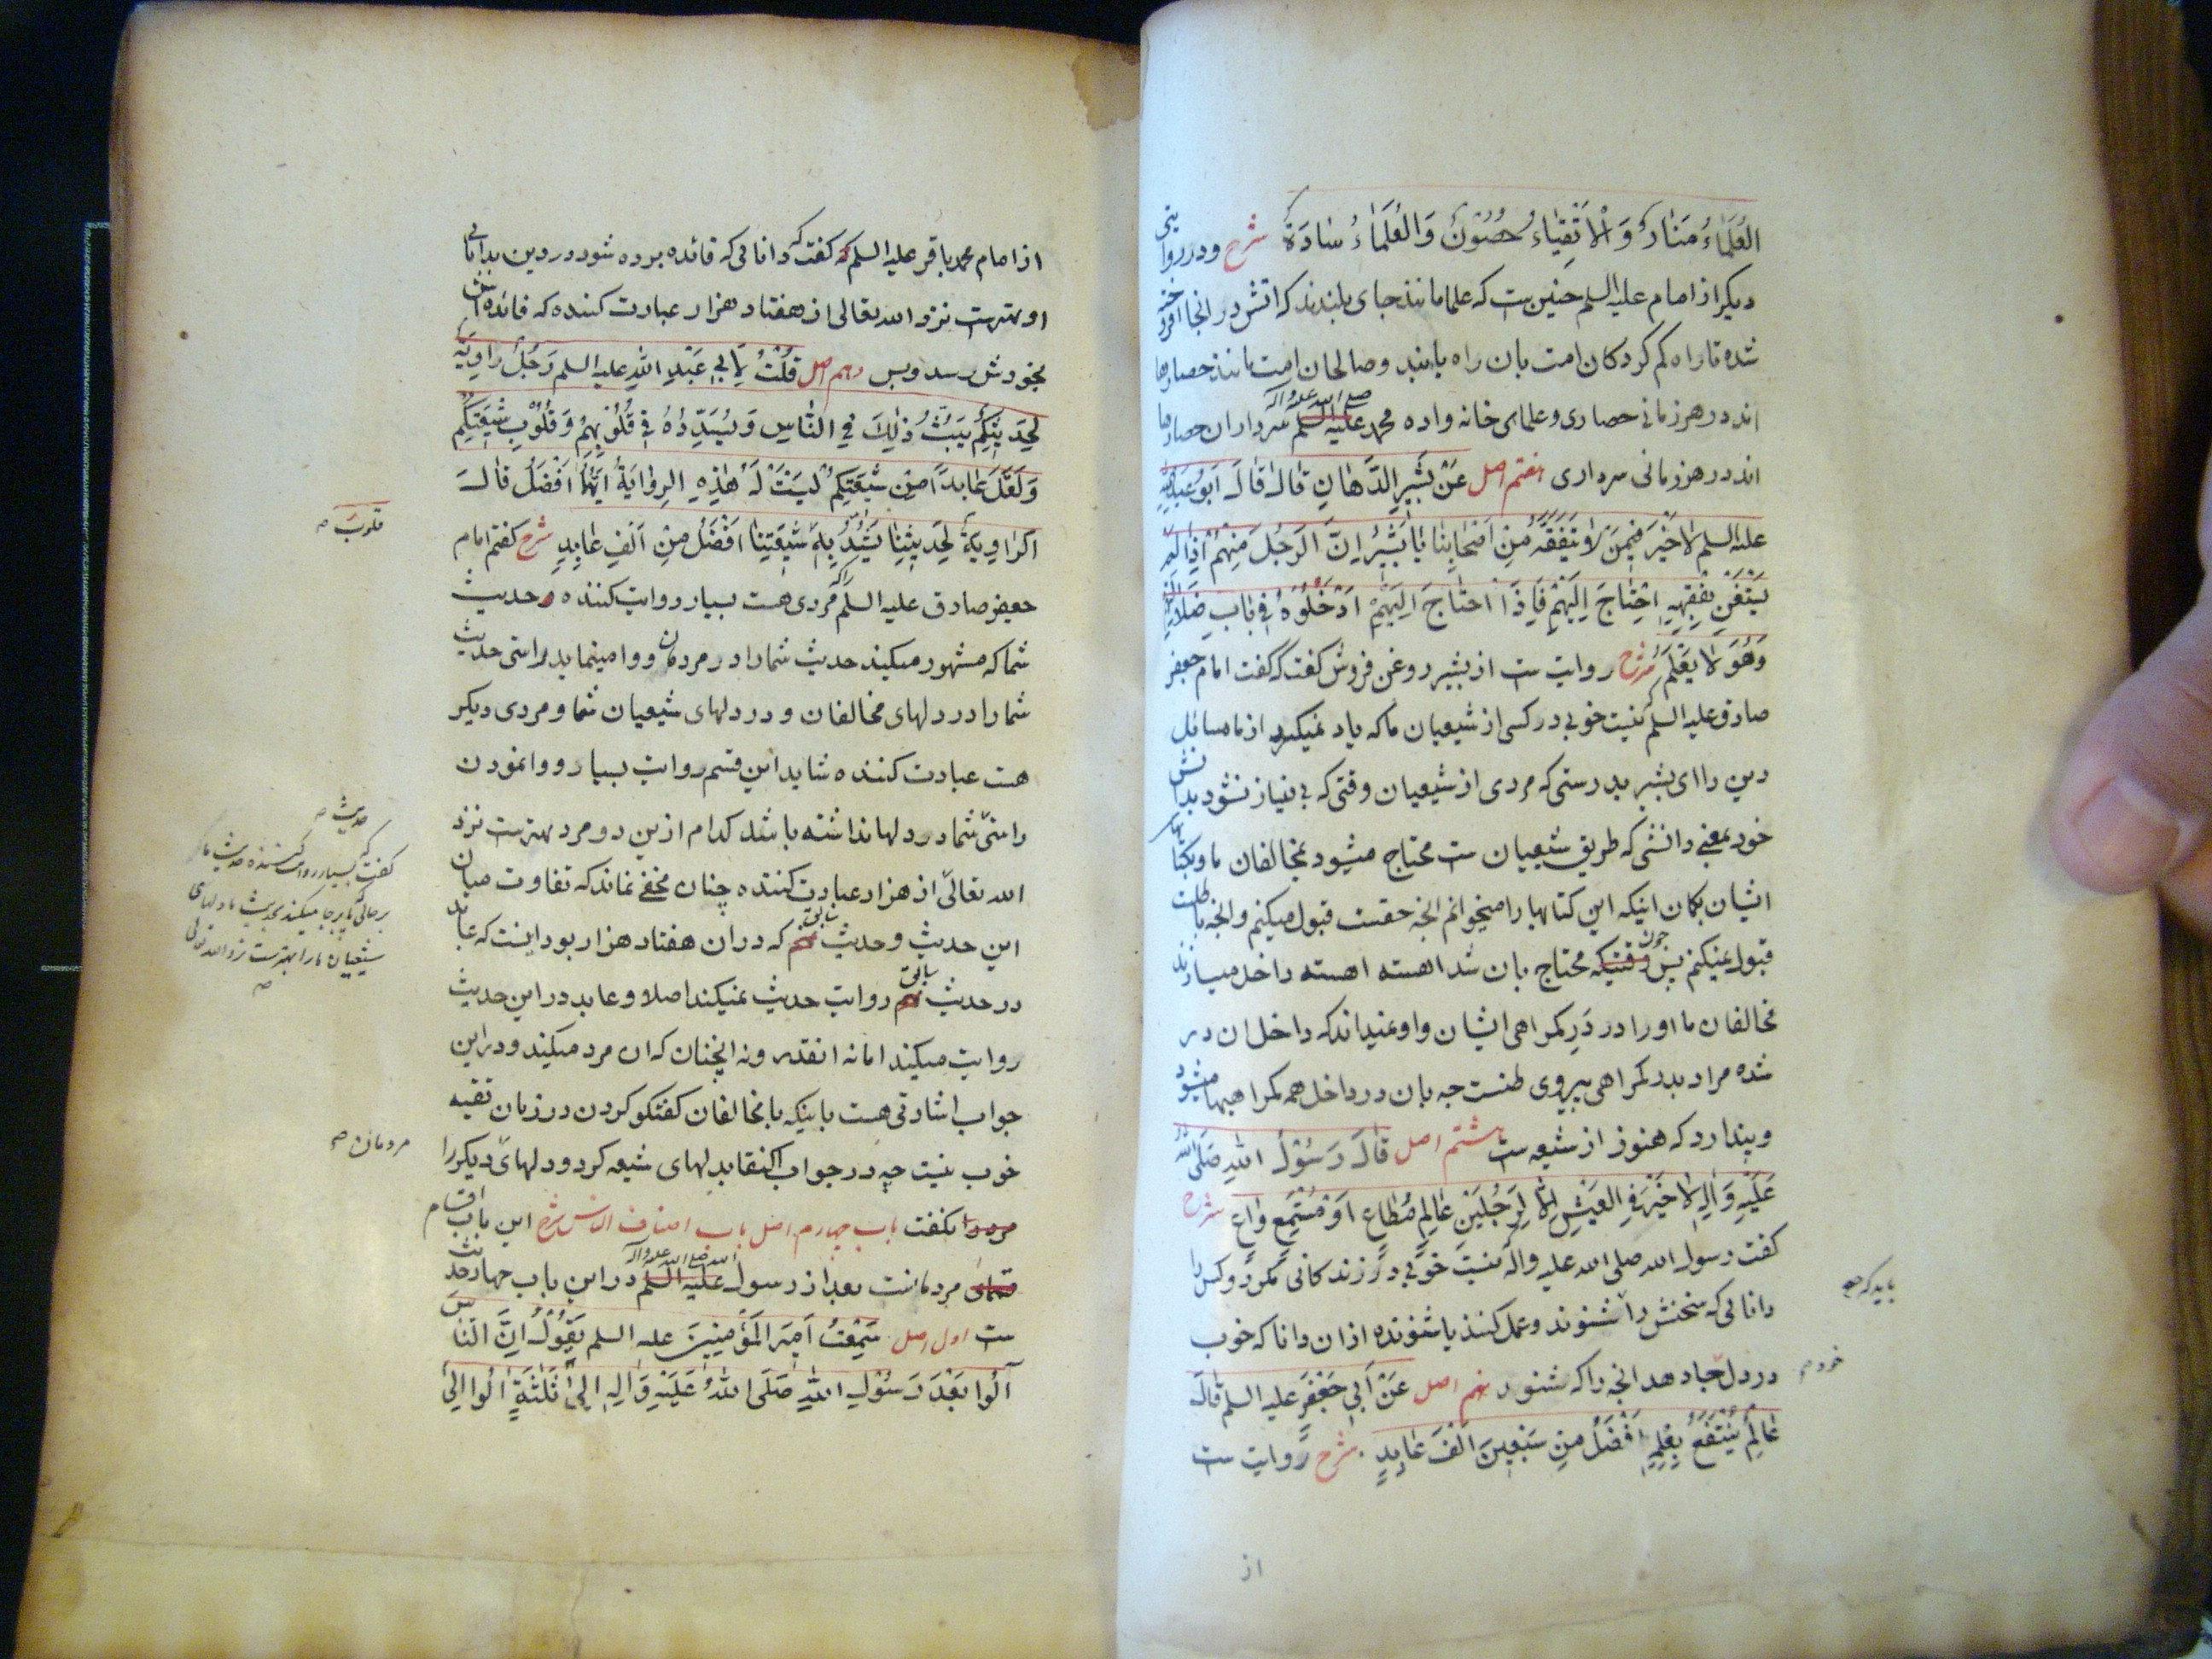 العُلَمَاءُ مَنَارٌ وَ الْاَتْقِيَاءُ حُصُونٌ وَالعُلَمَاءُ سَادَةٌ شرح ودر روایتی
دیکر از امام علیه السلم چنین ست که علما مانند جای بلندند که اتش در انجا افروخته
شده تا راه کم کردکان امت بان راه یابند وصالحان امت مانند حصارها
اند در هر زمانی حصاری وعلمای خانه واده محمد صلی الله علیه واله سرداران حصارها
اند در هر زمانی سرداری هفتم اصل عَنْ بَشِيرِ الدَّهَانِ قالَ قالَ اَبوُعَبدِاللهِ
علیه السلم لاخَيْرَ فِيمَنْ لا يَتَفَقَّهُ مِنْ اَصْحَابِنَا يَا بَشِيرُ اِنَّ الرَجُلَ مِنهُمْ اِذَا لَمْ
يَسْتَغْنِ بِفِقهِهِ اِحْتَاجَ اِلَيْهِمْ فَاِذَا احْتَاجَ اِلَيْهِمْ اَدْخَلُوُهُ فِي بَابِ ضَلَالَتِهِمْ
وَهُوَ لَا يَعْلَمُ شرح روایت ست از بشیر روغن فروش کفت که کفت امام جعفر
صادق علیه السلم نیست خوبی در کسی از شیعیان ما که یاد نمیکیرد از ما مسائل
دین را ای بشیر بدرستی که مردی از شیعیان وقتی که بی نیاز نشود بدانش
خود بمعنی دانشی که طریق شیعیان ست محتاج میشود بمخالفان ما وبکتابهای
ایشان بکمان اینکه این کتابها را میخوانم انچه حقست قبول میکنم وانچه باطلست
قبول نمیکنم پس چون وقتیکه محتاج بان شد اهسته اهسته داخل میسازند
مخالفان ما او را در دَرِ کمراهی ایشان واو نمیداند که داخل ان در
شده مراد بدر کمراهی پیروی ظنست چه بان در داخل همه کمراهیها میشود
وپندارد که هنوز از شیعه ست هشتم اصل قَالَ رَسُوْلُ اللهِ صَلَى اللهُ
عَلَيْهِ وَالِهِ لاخَيْرَ فِي العَيْشِ اِلَّا لِرَجُلَيْنِ عَالِمٍ مُطَاعٍ اَوْ مُسْتَمِعٍ وَاعٍ شرح
کفت رسول الله صلی الله علیه واله نیست خوبی در زندکانی مکر دو کس را
دانائی که سخنش را شنوند وعمل کنند یا شنونده ازان دانا که خوب
باید که
در دل جا دهد انچه را که شنود نهم اصل عَنْ اَبي جَعْفَرٍ علیه السلم قَالَ
خود
عَالِمٌ يُنْتَفَعُ بِعِلْمِهِ اَفْضَلُ مِنْ سَبْعِينَ اَلْفَ عَابِدٍ شرح روایت ست
از
از امام محمد باقر علیه السلم که کفت که دانائی که فائده برده شود در دین بدانائی
او بهترست نزد الله تعالی از هفتاد هزار عبادت کننده که فائده اش
بخودش رسد وبس دهم اصل قُلْتُ لِاَبي عَبْدِ اللهِ علیه السلم رَجُلٌ رَاوِيَةٌ
لِحَدِيثِكُمْ يَبُثُّ ذٰلِكَ فِي النَّاسِ وَ يُسَدِّدُهُ فِي قُلُوْبِهِمْ وَ قُلُوْبِ شِيْعَتِكُمْ
وَ لَعَلَّ عَابِدًا مِنْ شِيْعَتِكُمْ لَيْسَتْ لَهُ هٰذِهِ الرِوَايَةُ اَيُّهُمَا اَفْضَلُ قَالَ
قلوبَ ص
اَلرَاوِيَةُ لِحَدِيثِنَا يَشُدُّ بِهِ شِيْعَتِنَا اَفْضَلُ مِنْ اَلْفِ عَابِدٍ شرح کفتم امام
جعفر صادق علیه السلم را که مردی هست بسیار روایت کننده حدیث
شما که مشهور میکند حدیث شما را در مردمان ووامینماید براستی حدیث
شما را در دلهای مخالفان و در دلهای شیعیان شما و مردی دیکر
هست عبادت کننده شاید این قسم روایت بسیار ووانمودن
راستی شما در دلها نداشته باشد کدام ازین دو مرد بهترست نزد
حدیث ص
کفت که بسیار روایت کننده حدیث ما که
برجائی پابرجا میکند بحدیث ما دلهای
شیعیان ما را بهترست نزد الله تعالی
ص
الله تعالی از هزار عبادت کننده چنان مخفی نماند که تفاوت میان
این حدیث وحدیث سابق که دران هفتاد هزار بود اینست که عابد
در حدیث سابق روایت حدیث نمیکند اصلا وعابد در این حدیث
روایت میکند اما نه انقدر ونه انچنان که ان مرد میکند ودر این
جواب اشارتی هست باینکه با مخالفان کفتکو کردن در زمان تقیه
خوب نیست چه در جواب اکتفا بدلهای شیعه کرد ودلهای دیکر را
مردمان ص
نکفت باب چهارم اصل باب اصناف الناس شرح این باب اقسام
مردمانست بعد از رسول الله صلی الله علیه واله در این باب چهار حدیث
ست اول اصل سَمِعْتُ اَمِيرَ المُؤْمِنِينَ علیه السلم يَقُوْلُ اِنَّ النَّاسَ
آلُوا بَعْدَ رَسُوْلِ اللهِ صَلَى اللهُ عَلَيْهِ وَالِهِ اِلى ثَلٰثَةٍ آلُوا اِلى